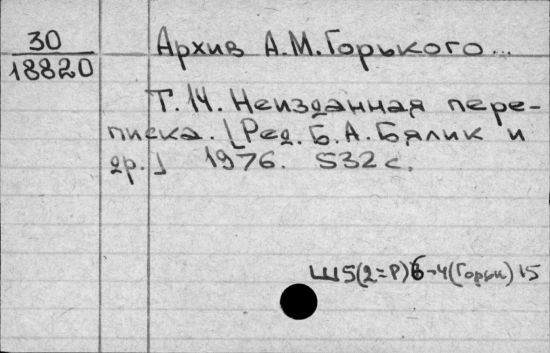 30
18820
Архив А.М.Горького...
Т. 14. Неизданная пере-
писка. [Ред. Б. А. Бялик и
др.] 1976. 532 с.
Ш5(2=Р)6-4(Горьк) 15